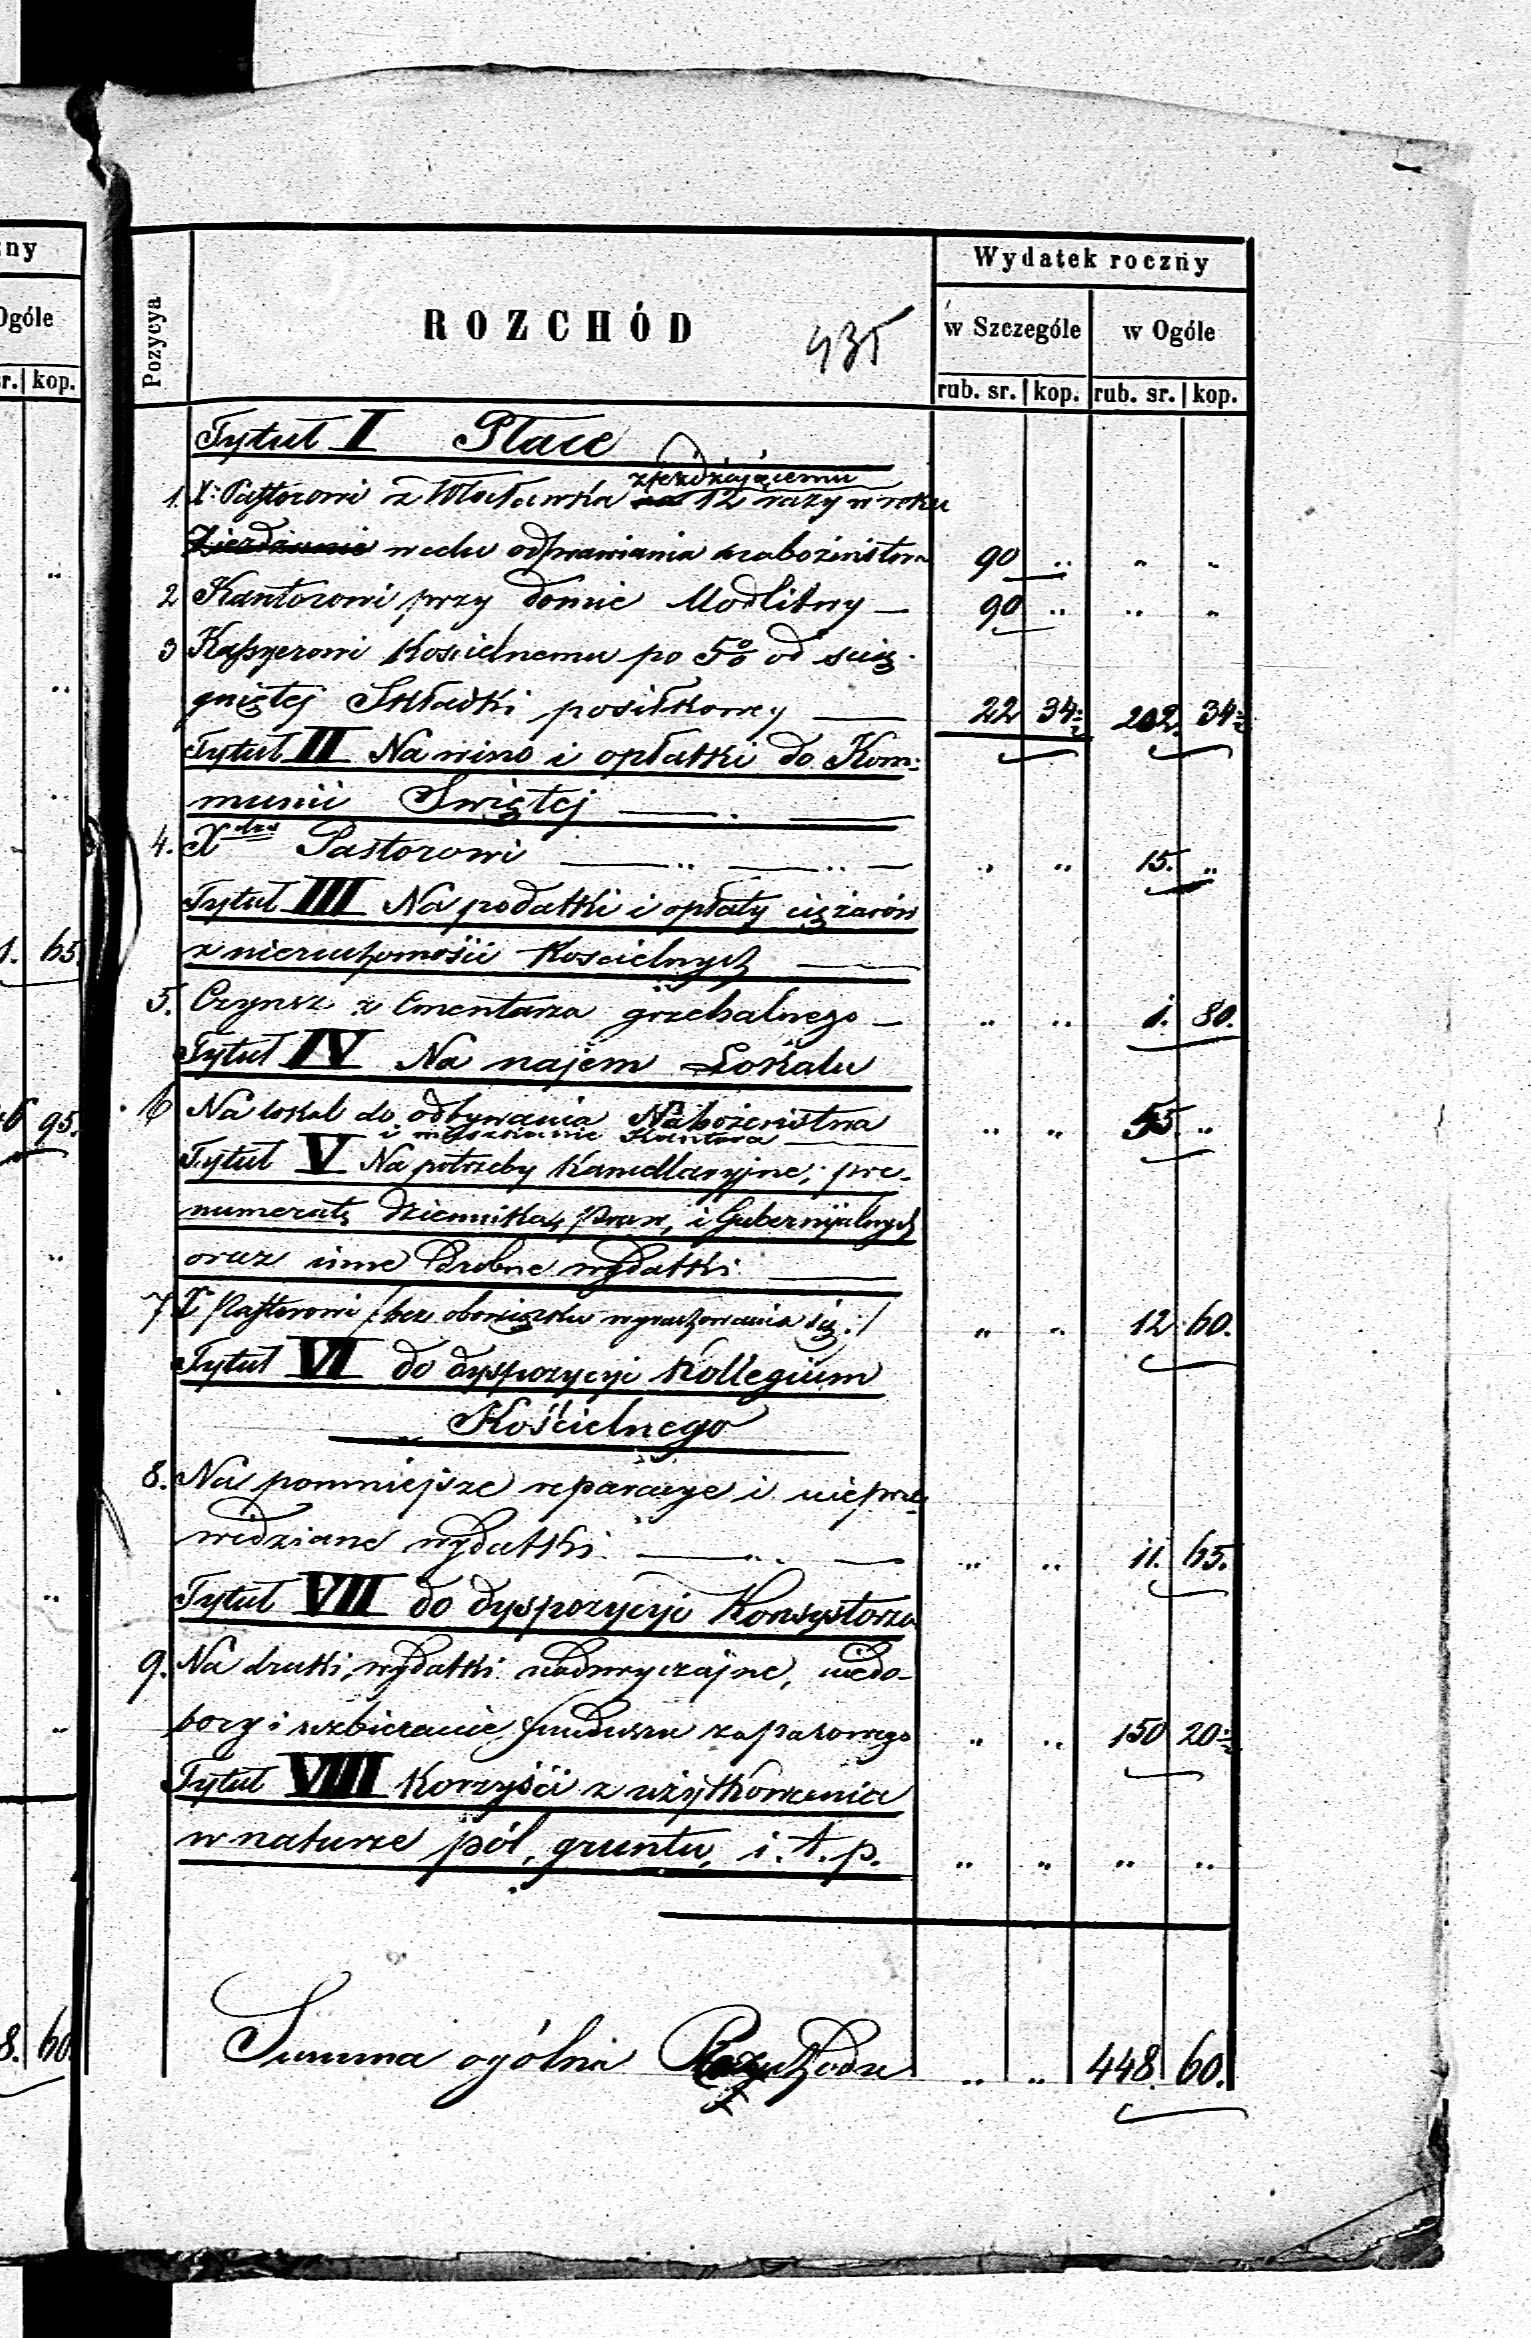 zny
Ogóle
r. kop.
1. 65.
6 95.
8. 60
Pozycya
ROZCHÓD
435
Wydatek roczny
w Szczególe w Ogóle
rub. sr. kop. rub. sr. kop.
Tytuł I Płace
zjeżdżającemu
1. X: Pastorowi z Włocławka na 12 razy w roku
Zjeżdżanie w celu odprawiania nabożeństwa 90 .. .. ..
2 Kantorowi przy domie Modlitwy — 90 .. .. ..
3 Kassyerowi Kościelnemu po 5% od ściąg-
gniętej Składki posiłkowey — 22 34½ 202. 34½
Tytuł II Na wino i opłatki do Kom-
munii Swiętej —
4. Xdzu Pastorowi — .. .. 15. ..
Tytuł III Na podatki i opłaty ciężarów
z nieruchomości Kościelnych —
5. Czynsz z Cmentarza grzebalnego — .. .. 1. 80.
Tytuł IV Na najem Lokalu
6 Na lokal do odbywania Nabożeństwa .. .. 55. ..
i mieszkanie Kantora —
Tytuł V Na potrzeby Kancellaryjne, pre-
numeratę Dziennika Praw, i Gubernijalnych
oraz inne Drobne wydatki —
7. X Pastorowi /: bez obowiązku wyrachowania się :/ .. .. 12. 60.
Tytuł VI do dyspozycyi Kollegium
Kościelnego
8. Na pomniejsze reparacye i nieprze-
widziane wydatki — .. .. 11. 65.
Tytuł VII do dyspozycyi Konsystorza
9. Na druki, wydatki nadzwyczajne, niedo-
bory i uzbieranie funduszu zapasowego .. .. 150 20½
Tytuł VIII Korzyści z użytkowania
w naturze pól, gruntu, i. t. p. .. .. .. ..
Summa ogólna Rozchodu .. .. 448. 60.